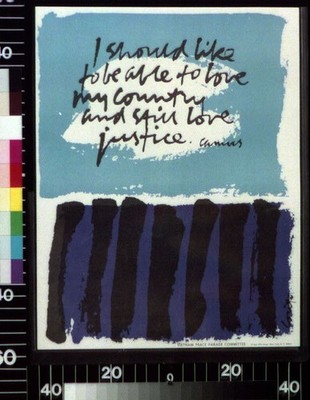 I should like
to be able to love
my country
and still love
justice. Camus
PEACE PARADE COMMITTEE
40
60
20
0
20
40
40